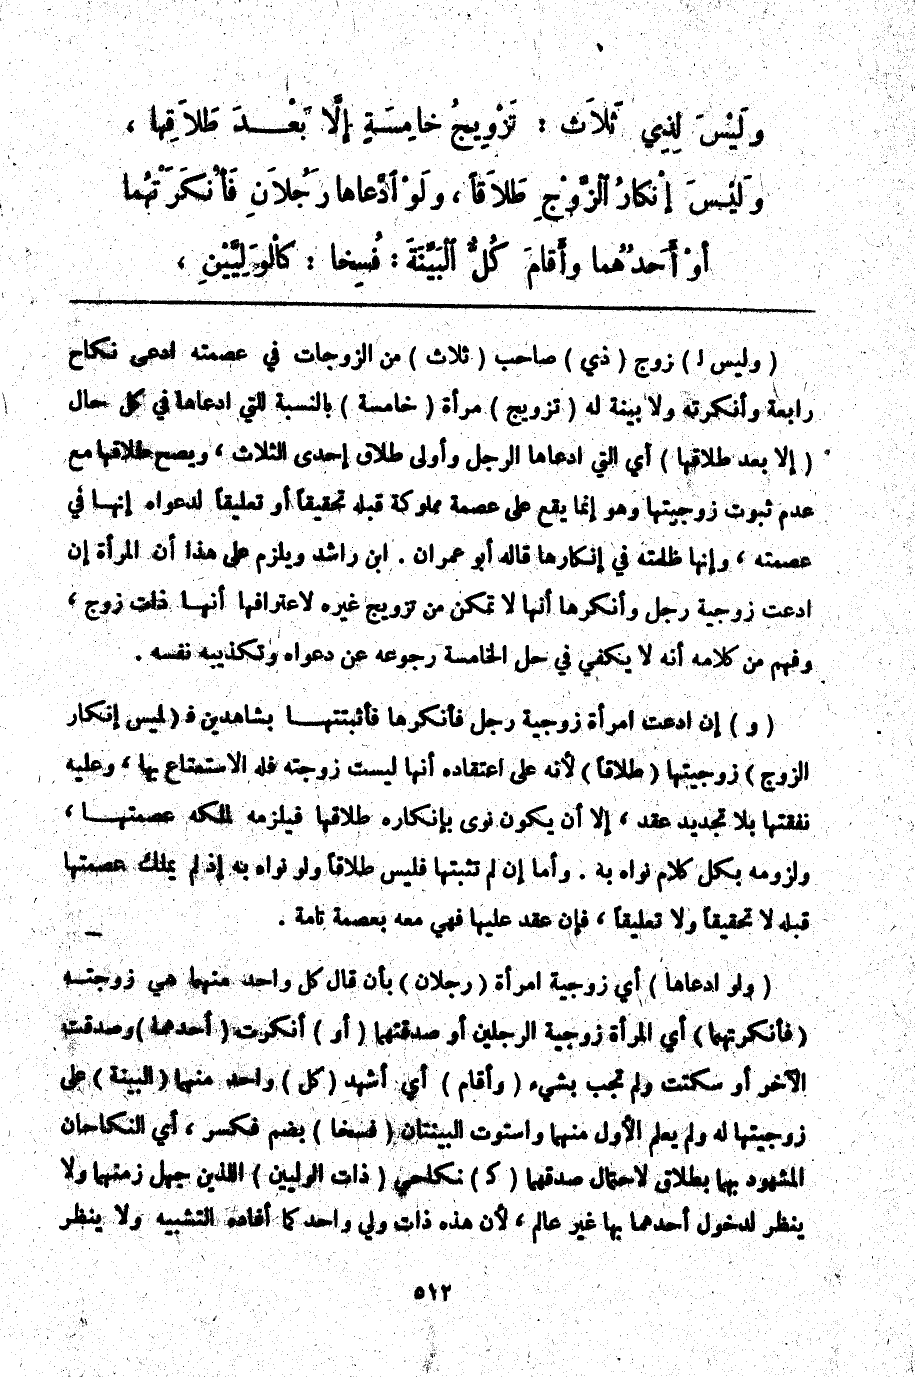 وَلَيْسَ لِذِي ثَلاَث : تَزْوِيجُ خامِسَةٍ إِلَّا بَعْـــدَ طَلاَقِها ،
وَلَيْسَ إنْكارُ ٱلزَّوْجِ طَلاَقاً ، وَلَوْ ٱدَّعاها رَجُلاَنِ فَأَنْكَرَتْهُما
أوْ أَحَدَهُما وأَقامَ كُلٌّ ٱلْبَيِّنَةَ : فُسِخا : كٱلْوَلِيَّيْنِ ،
( وليس ل ) زوج ( ذي ) صاحب ( ثلاث ) من الزوجات في عصمته ادعى نكاح
رابعة وأنكرته ولا بينة له ( تزويج ) مرأة ( خامسة ) بالنسبة للتي ادعاها في كل حال
( إلا بعد طلاقها ) أي التي ادعاها الرجل وأولى طلاق إحدى الثلاث ، ويصح طلاقها مع
عدم ثبوت زوجيتها وهو إنما يقع على عصمة مملوكة قبله تحقيقاً أو تعليقاً لدعواه إنهـا في
عصمته ، وإنها ظلمته في إنكارها قاله أبو عمران . ابن راشد ويلزم على هذا أن المرأة إن
ادعت زوجية رجل وأنكرها أنها لا تمكن من تزويج غيره لاعترافها أنهـا ذات زوج ،
وفهم من كلامه أنه لا يكفي في حل الخامسة رجوعه عن دعواه وتكذيبه نفسه .
( و ) إن ادعت امرأة زوجية رجل فأنكرها فأثبتتهـــا بشاهدين ف ( ليس إنكار
الزوج ) زوجيتها ( طلاقاً ) لأنه على اعتقاده أنها ليست زوجته فله الاستمتاع بها ، وعليه
نفقتها بلا تجديد عقد ، إلا أن يكون نوى بإنكاره طلاقها فيلزمه لملكه عصمتهـــا ،
ولزومه بكل كلام نواه به . وأما إن لم تثبتها فليس طلاقاً ولو نواه به إذ لم يملك عصمتها
قبله لا تحقيقاً ولا تعليقاً ، فإن عقد عليها فهي معه بعصمة تامة .
( ولو ادعاها ) أي زوجية امرأة ( رجلان ) بأن قال كل واحد منهما هي زوجتـه
( فأنكرتهما ) أي المرأة زوجية الرجلين أو صدقتهما ( أو ) أنكرت ( أحدهما ) وصدقت
الآخر أو سكتت ولم تجب بشيء ( وأقام ) أي أشهد ( كل ) واحد منهما ( البينة ) على
زوجيتها له ولم يعلم الأول منهما واستوت البينتان ( فسخا ) بضم فكسر ، أي النكاحان
المشهود بهما بطلاق لاحتمال صدقهما ( ك ) نكاحي ( ذات الوليين ) اللذين جهل زمنهما ولا
ينظر لدخول أحدهما بها غير عالم ، لأن هذه ذات ولي واحد كما أفاده التشبيه ولا ينظر
٥١٢